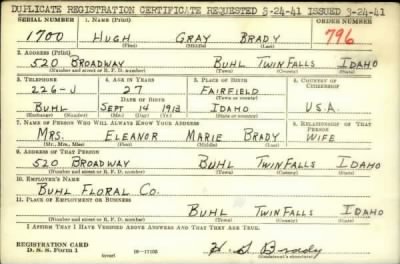 DUPLICATE REGISTRATION CERTIFICATE REQUESTED 3-24-41 ISSUED 3-24-41
SERIAL NUMBER 1. NAME (Print) ORDER NUMBER
1700 HUGH GRAY BRADY 796
(First) (Middle) (Last)
2. ADDRESS (Print)
520 BROADWAY BUHL TWIN FALLS IDAHO
(Number and street or R. F. D. number) (Town) (County) (State)
3. TELEPHONE 4. AGE IN YEARS 5. PLACE OF BIRTH 6. COUNTRY OF CITIZENSHIP
226-J 27 FAIRFIELD
DATE OF BIRTH (Town or county)
BUHL SEPT 14 1913 IDAHO U.S.A.
(Exchange) (Number) (Mo.) (Day) (Yr.) (State or country)
7. NAME OF PERSON WHO WILL ALWAYS KNOW YOUR ADDRESS 8. RELATIONSHIP OF THAT PERSON
MRS. ELEANOR MARIE BRADY WIFE
(Mr., Mrs., Miss) (First) (Middle) (Last)
9. ADDRESS OF THAT PERSON
520 BROADWAY BUHL TWIN FALLS IDAHO
(Number and street or R. F. D. number) (Town) (County) (State)
10. EMPLOYER'S NAME
BUHL FLORAL CO.
11. PLACE OF EMPLOYMENT OR BUSINESS
BUHL TWIN FALLS IDAHO
(Number and street or R. F. D. number) (Town) (County) (State)
I AFFIRM THAT I HAVE VERIFIED ABOVE ANSWERS AND THAT THEY ARE TRUE.
REGISTRATION CARD
D. S. S. Form 1 (over) 16-17105 H G Brady
(Registrant's signature)